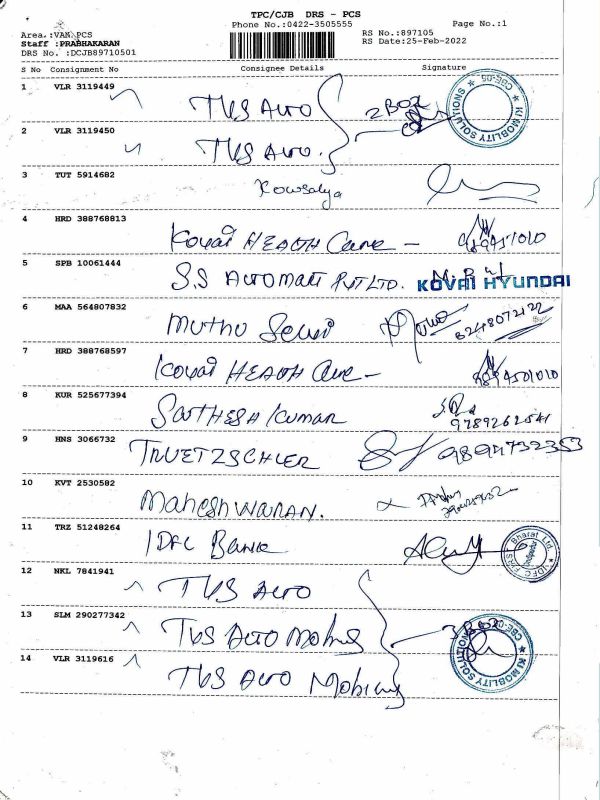 TPC/CJB DRS - PCS
Phone No.:0422-3505555
Page No.:1
Area :VAK PCS
RS No.:897105
Staff :PRABHAKARAN
RS Date:25-Feb-2022
DRS No. :DCJB89710501
S No Consignment No Consignee Details Signature
1 VLR 3119449 TVS Auto 2 BOX
KI MOBILITY SOLUTIONS CBE-05
2 VLR 3119450 TVS Auto.
3 TUT 5914682 Kowsalya
4 HRD 388768813 Kovai HEALTH Care -
5 SPB 10061444 S.S AUTOMATE PVT LTD. KOVAI HYUNDAI
6 MAA 564807832 Muthu Selvi 6248072122
7 HRD 388768597 Kovai HEALTH Care -
8 KUR 525677394 Sathesh Kumar
9 HNS 3066732 TRUETZSCHLER
10 KVT 2530582 Maheshwaran.
11 TRZ 51248264 IDFC Bank
IDFC First Bharat Ltd.
12 NKL 7841941 TVS Auto
13 SLM 290277342 TVS Auto Mobiles 3 BOX
KI MOBILITY SOLUTIONS CBE-05
14 VLR 3119616 TVS Auto Mobiles